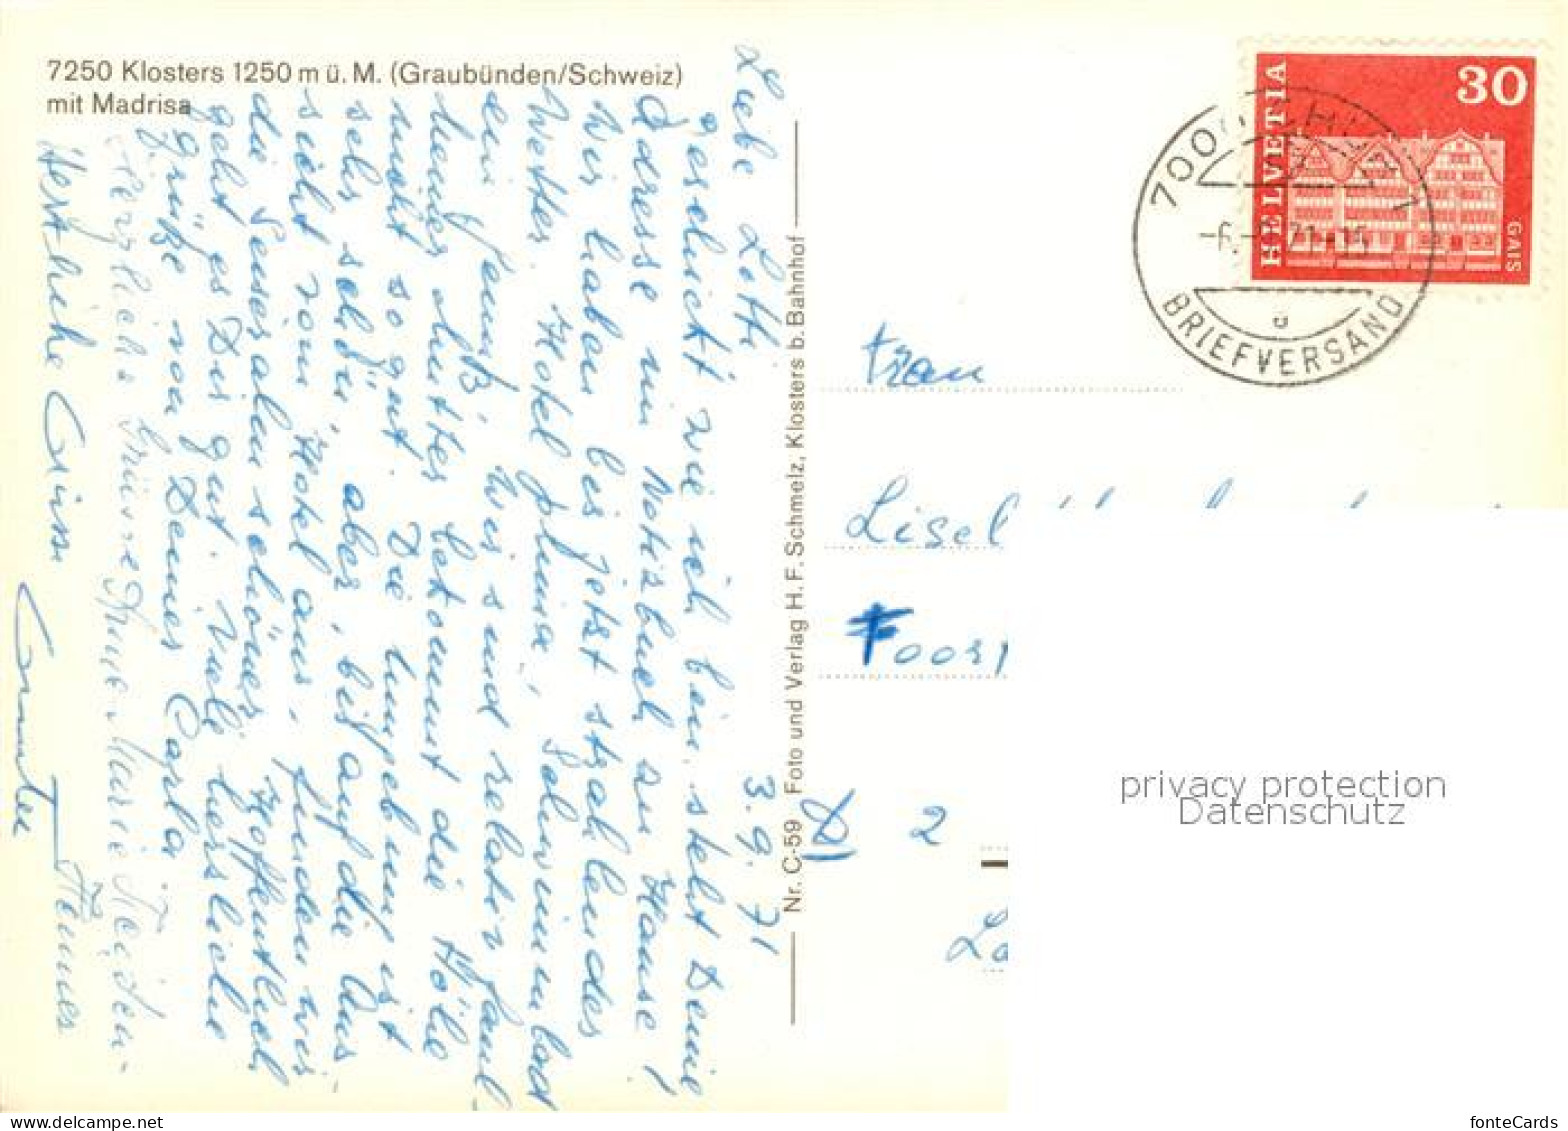 7250 Klosters 1250 m ü. M. (Graubünden/Schweiz)
mit Madrisa
3.9.71
Liebe Lotti
geschickt wie ich bin, steht Deine
Adresse im Notizbuch zu Hause!
Wir haben bis jetzt strahlendes
Wetter. Hotel prima, Schwimmbad
ein Genuß, wir sind relativ faul
bekommt die Höhe
nicht so gut. Die Umgebung ist
sehr schön, aber, bis auf die Aus-
sicht vom Hotel aus, finden wir
die schöner. Hoffentlich
geht es Dir gut. Viele herzliche
grüße von Deiner Carla
Herzliche Grüsse Anne-Marie
Herzliche Grüsse
Nr. C-59 Foto und Verlag H. F. Schmelz, Klosters b. Bahnhof
HELVETIA
30
GAIS
7000 CHUR 1
BRIEFVERSAND
Frau
Lisel
2
privacy protection
Datenschutz
www.delcampe.net
fonteCards